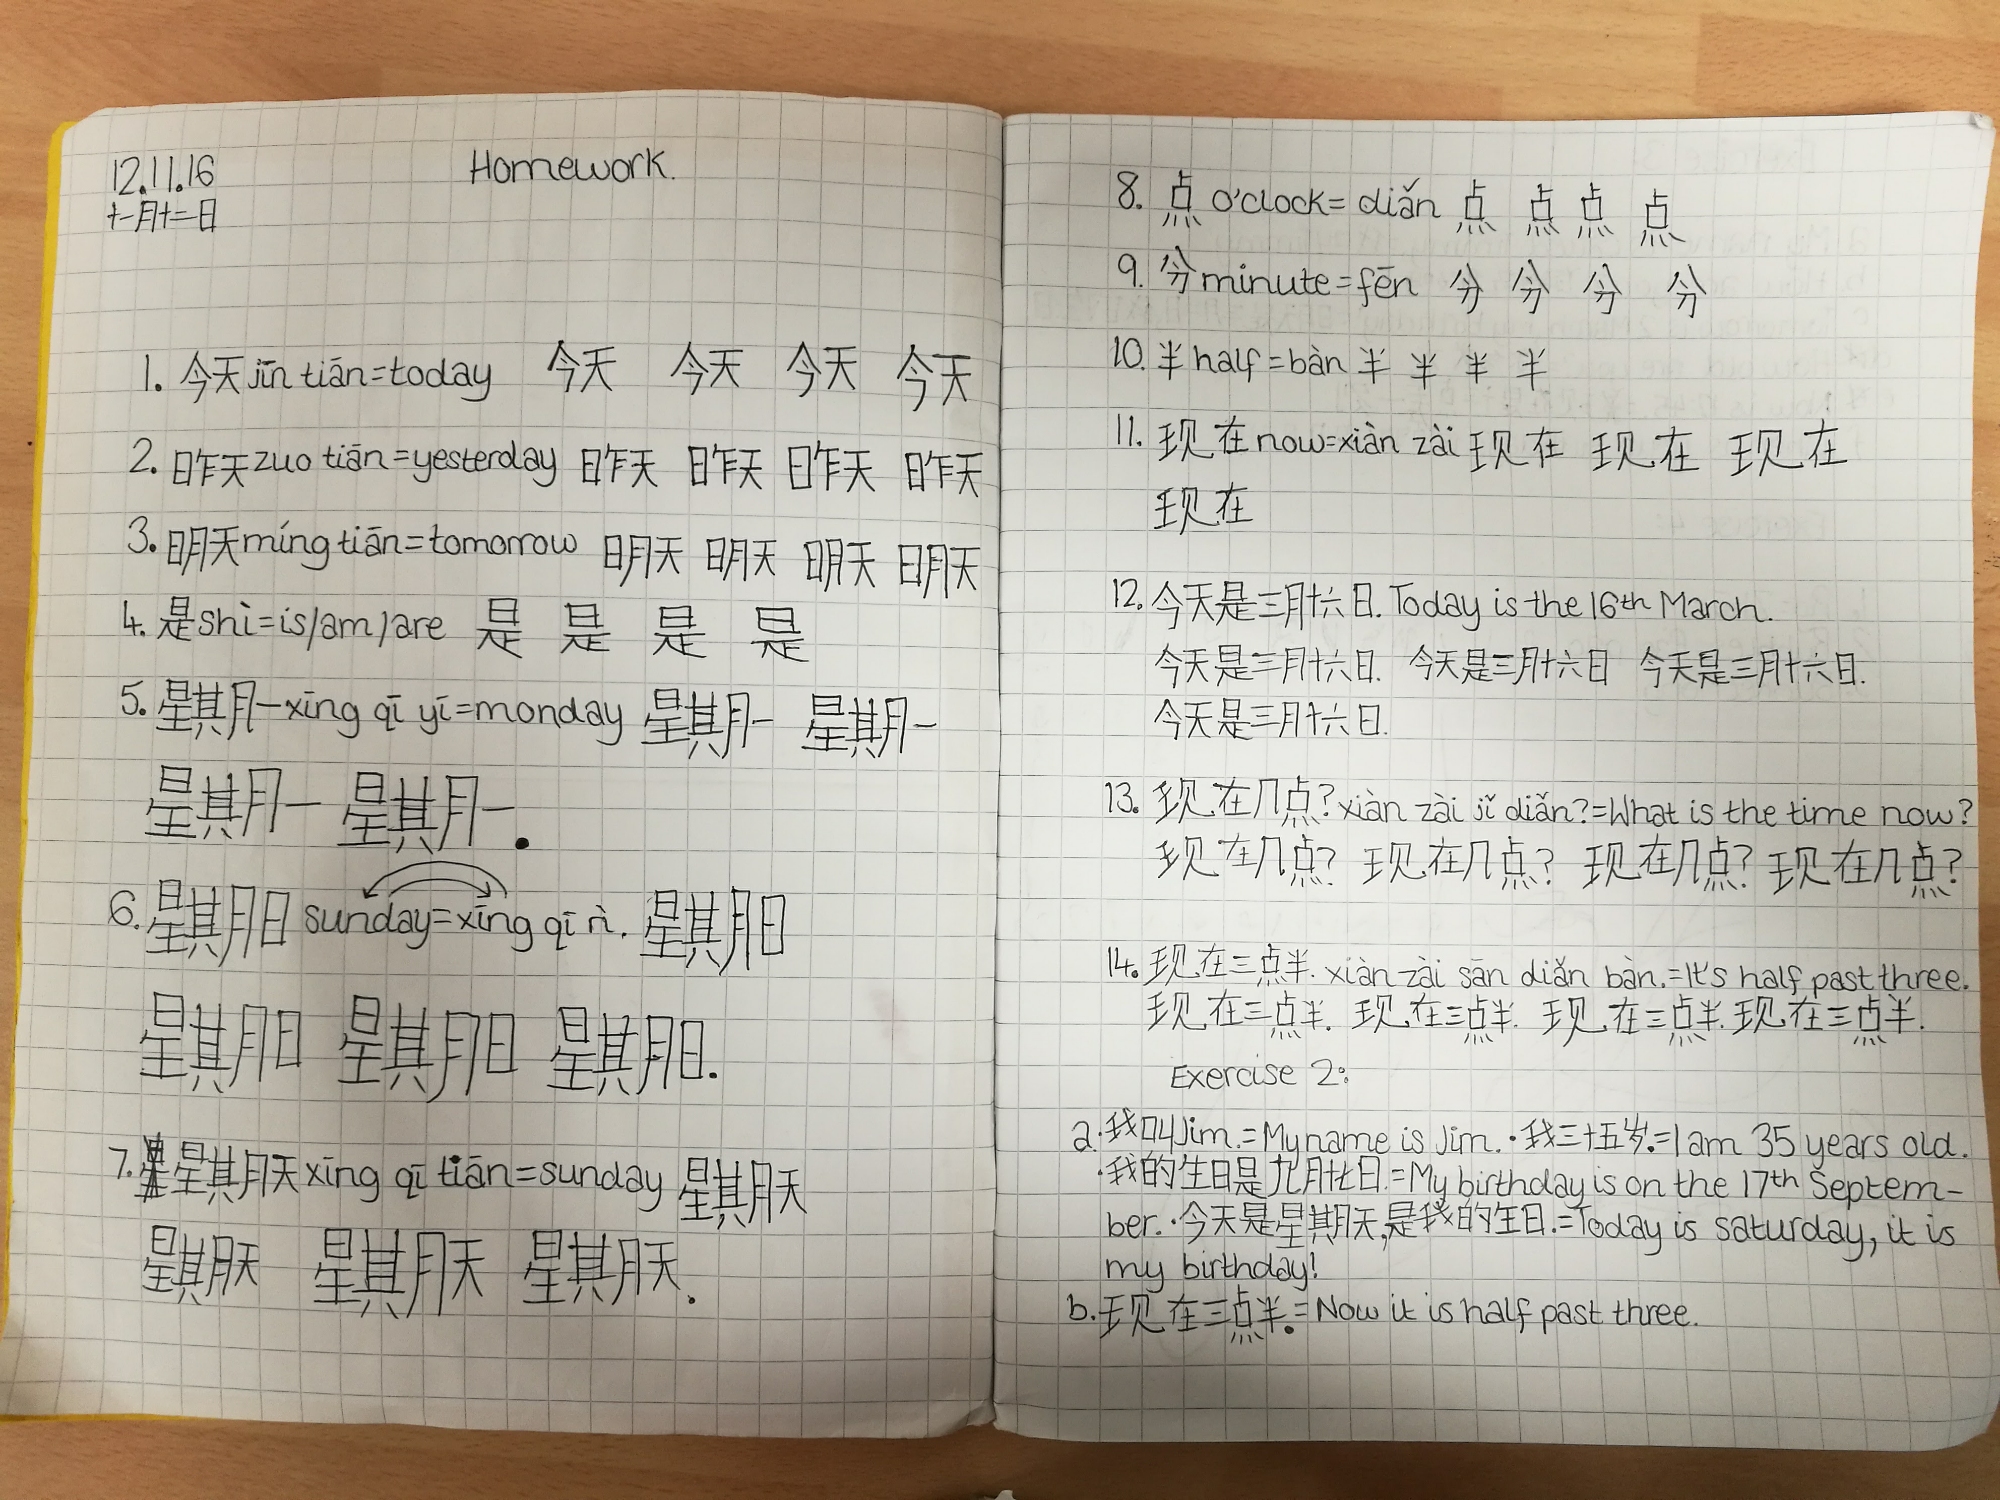 12.11.16
Homework.
十一月十二日
1. 今天 jīn tiān=today 今天 今天 今天 今天
2. 昨天 zuo tiān=yesterday 昨天 昨天 昨天 昨天
3. 明天 míng tiān=tomorrow 明天 明天 明天 明天
4. 是 shì=is/am/are 是 是 是 是
5. 星期一 xīng qī yī=monday 星期一 星期一
星期一 星期一.
6. 星期日 sunday=xīng qī rì. 星期日
星期日 星期日 星期日.
7. 星期天 xīng qī tiān=sunday 星期天
星期天 星期天 星期天.
8. 点 o'clock=diǎn 点 点 点 点
9. 分 minute=fēn 分 分 分 分
10. 半 half=bàn 半 半 半 半
11. 现在 now=xiàn zài 现在 现在 现在
现在
12. 今天是三月十六日. Today is the 16th March.
今天是三月十六日. 今天是三月十六日 今天是三月十六日.
今天是三月十六日.
13. 现在几点? xiàn zài jǐ diǎn?=What is the time now?
现在几点? 现在几点? 现在几点? 现在几点?
14. 现在三点半. xiàn zài sān diǎn bàn.=It's half past three.
现在三点半. 现在三点半. 现在三点半. 现在三点半.
Exercise 2:
a.·我叫Jim.=My name is Jim.·我三十五岁.=I am 35 years old.
·我的生日是九月十七日.=My birthday is on the 17th Septem-
ber.·今天是星期天,是我的生日.=Today is saturday, it is
my birthday!
b. 现在三点半.=Now it is half past three.